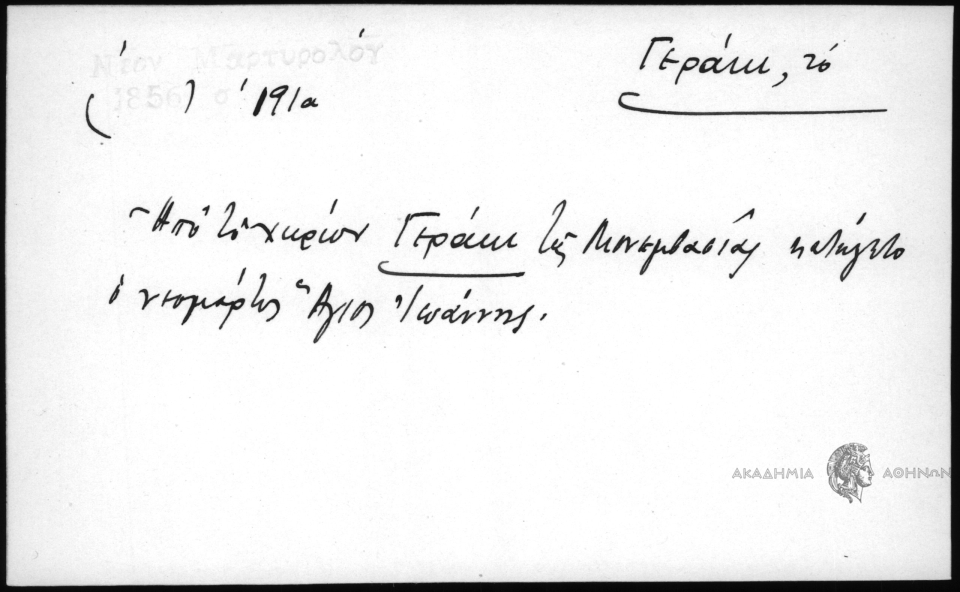 Νέον Μαρτυρολόγ
(1856) σ' 191α
Γεράκι, τό
Ἀπὸ τὸ χωρίον Γεράκι τῆς Μονεμβασίας κατήγετο
ὁ νεομάρτυς Ἅγιος Ἰωάννης.
ΑΚΑΔΗΜΙΑ ΑΘΗΝΩΝ